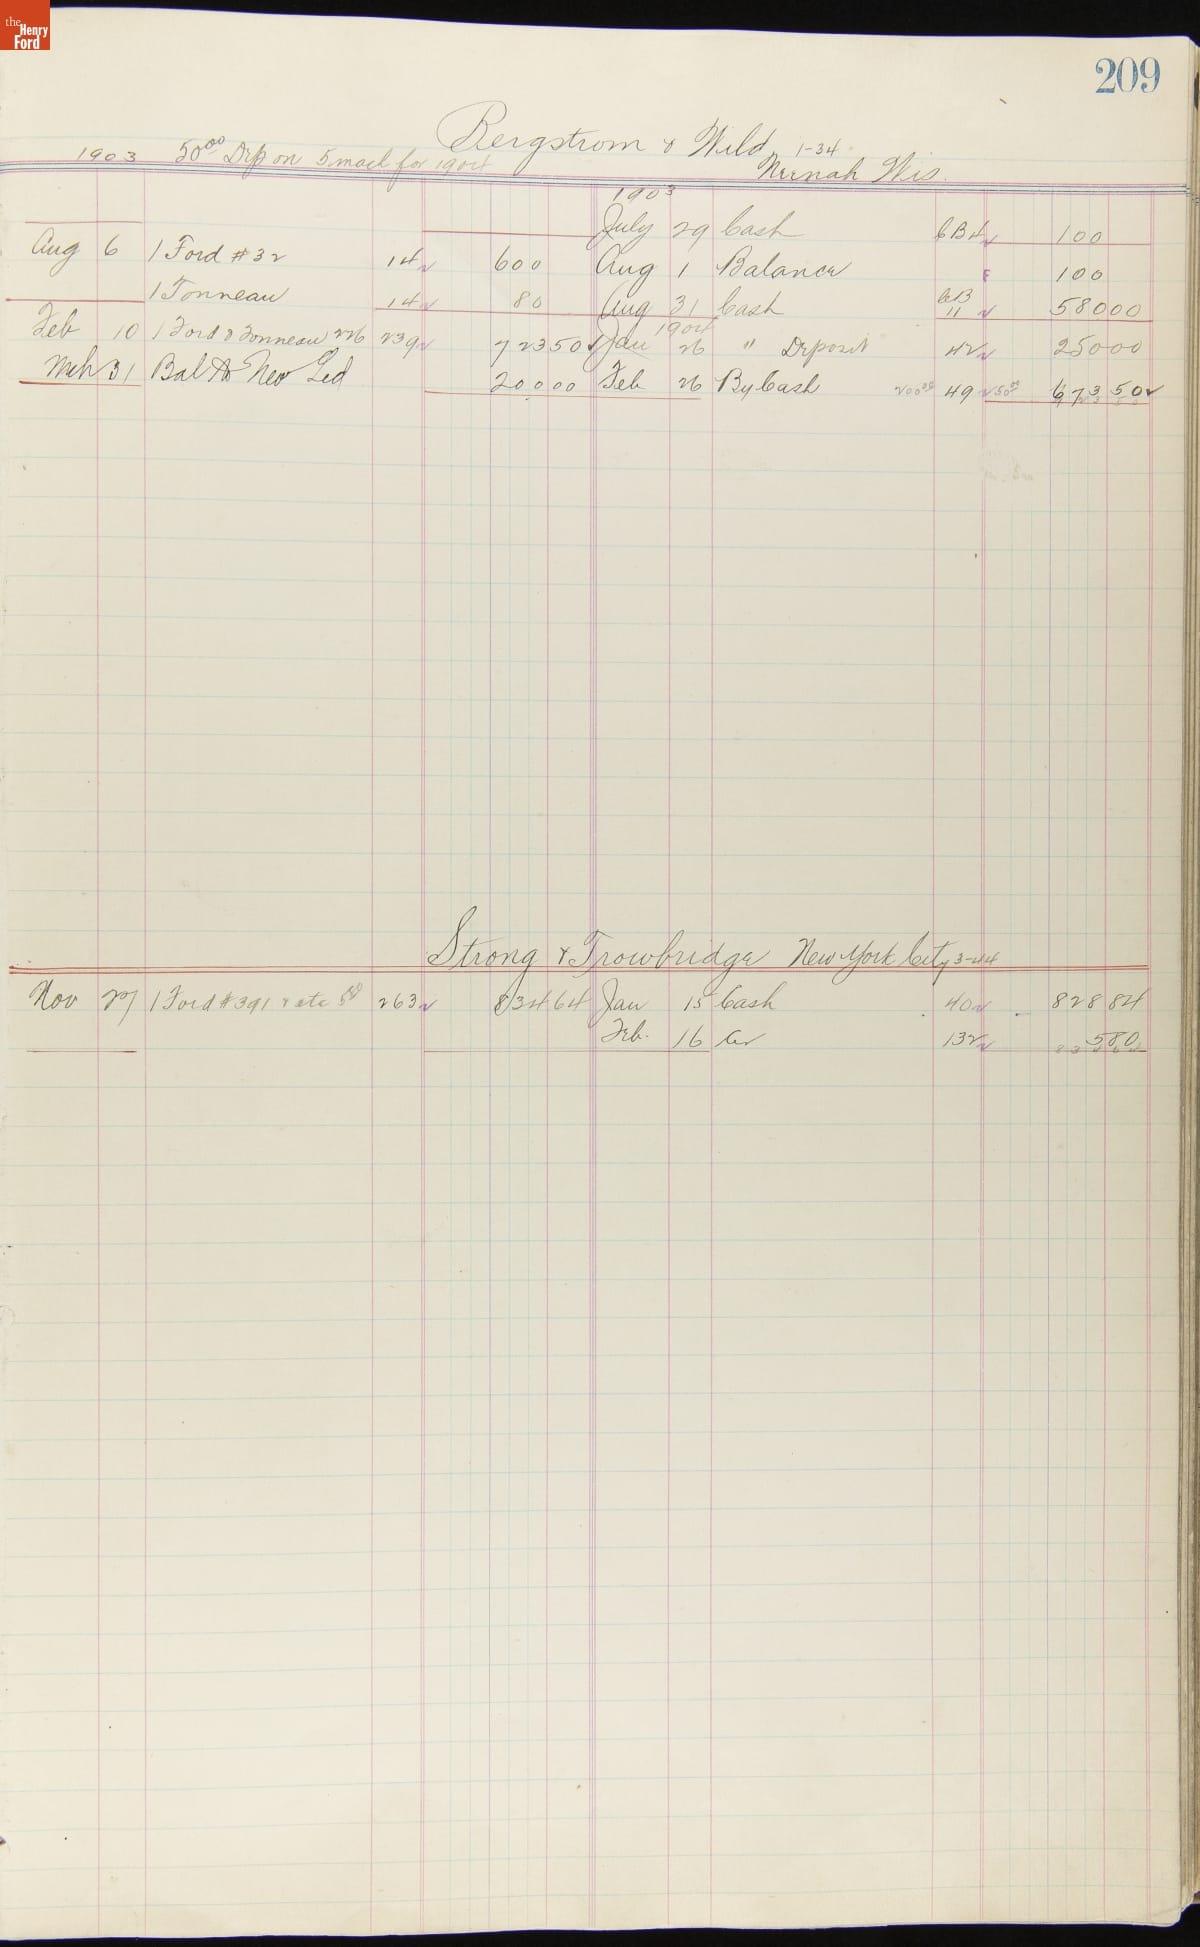 the
Henry
Ford
209
Bergstrom & Wild 1-34
1903 50 00 Dep on 5 mach for 1904 Neenah Wis.
1903
July 29 Cash CB 4 100
Aug 6 1 Ford #32 14 600 Aug 1 Balance 100
1 Tonneau 14 80 Aug 31 Cash CB 11 58000
1904
Feb 10 1 Ford & Tonneau 226 239 72350 Jan 26 " Deposit 42 25000
Mch 31 Bal to New Led 20000 Feb 26 By Cash 200 00 49 50 00 67350
Strong & Trowbridge New York City 3-44
Nov 27 1 Ford #391 & etc 263 83464 Jan 15 Cash 40 82884
Feb. 16 Cr 132 580
83464